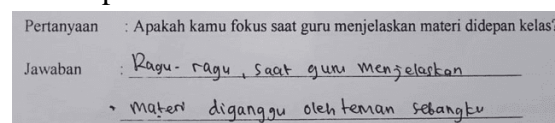 Pertanyaan : Apakah kamu fokus saat guru menjelaskan materi didepan kelas?
Jawaban : Ragu-ragu, saat guru menjelaskan
materi diganggu oleh teman sebangku